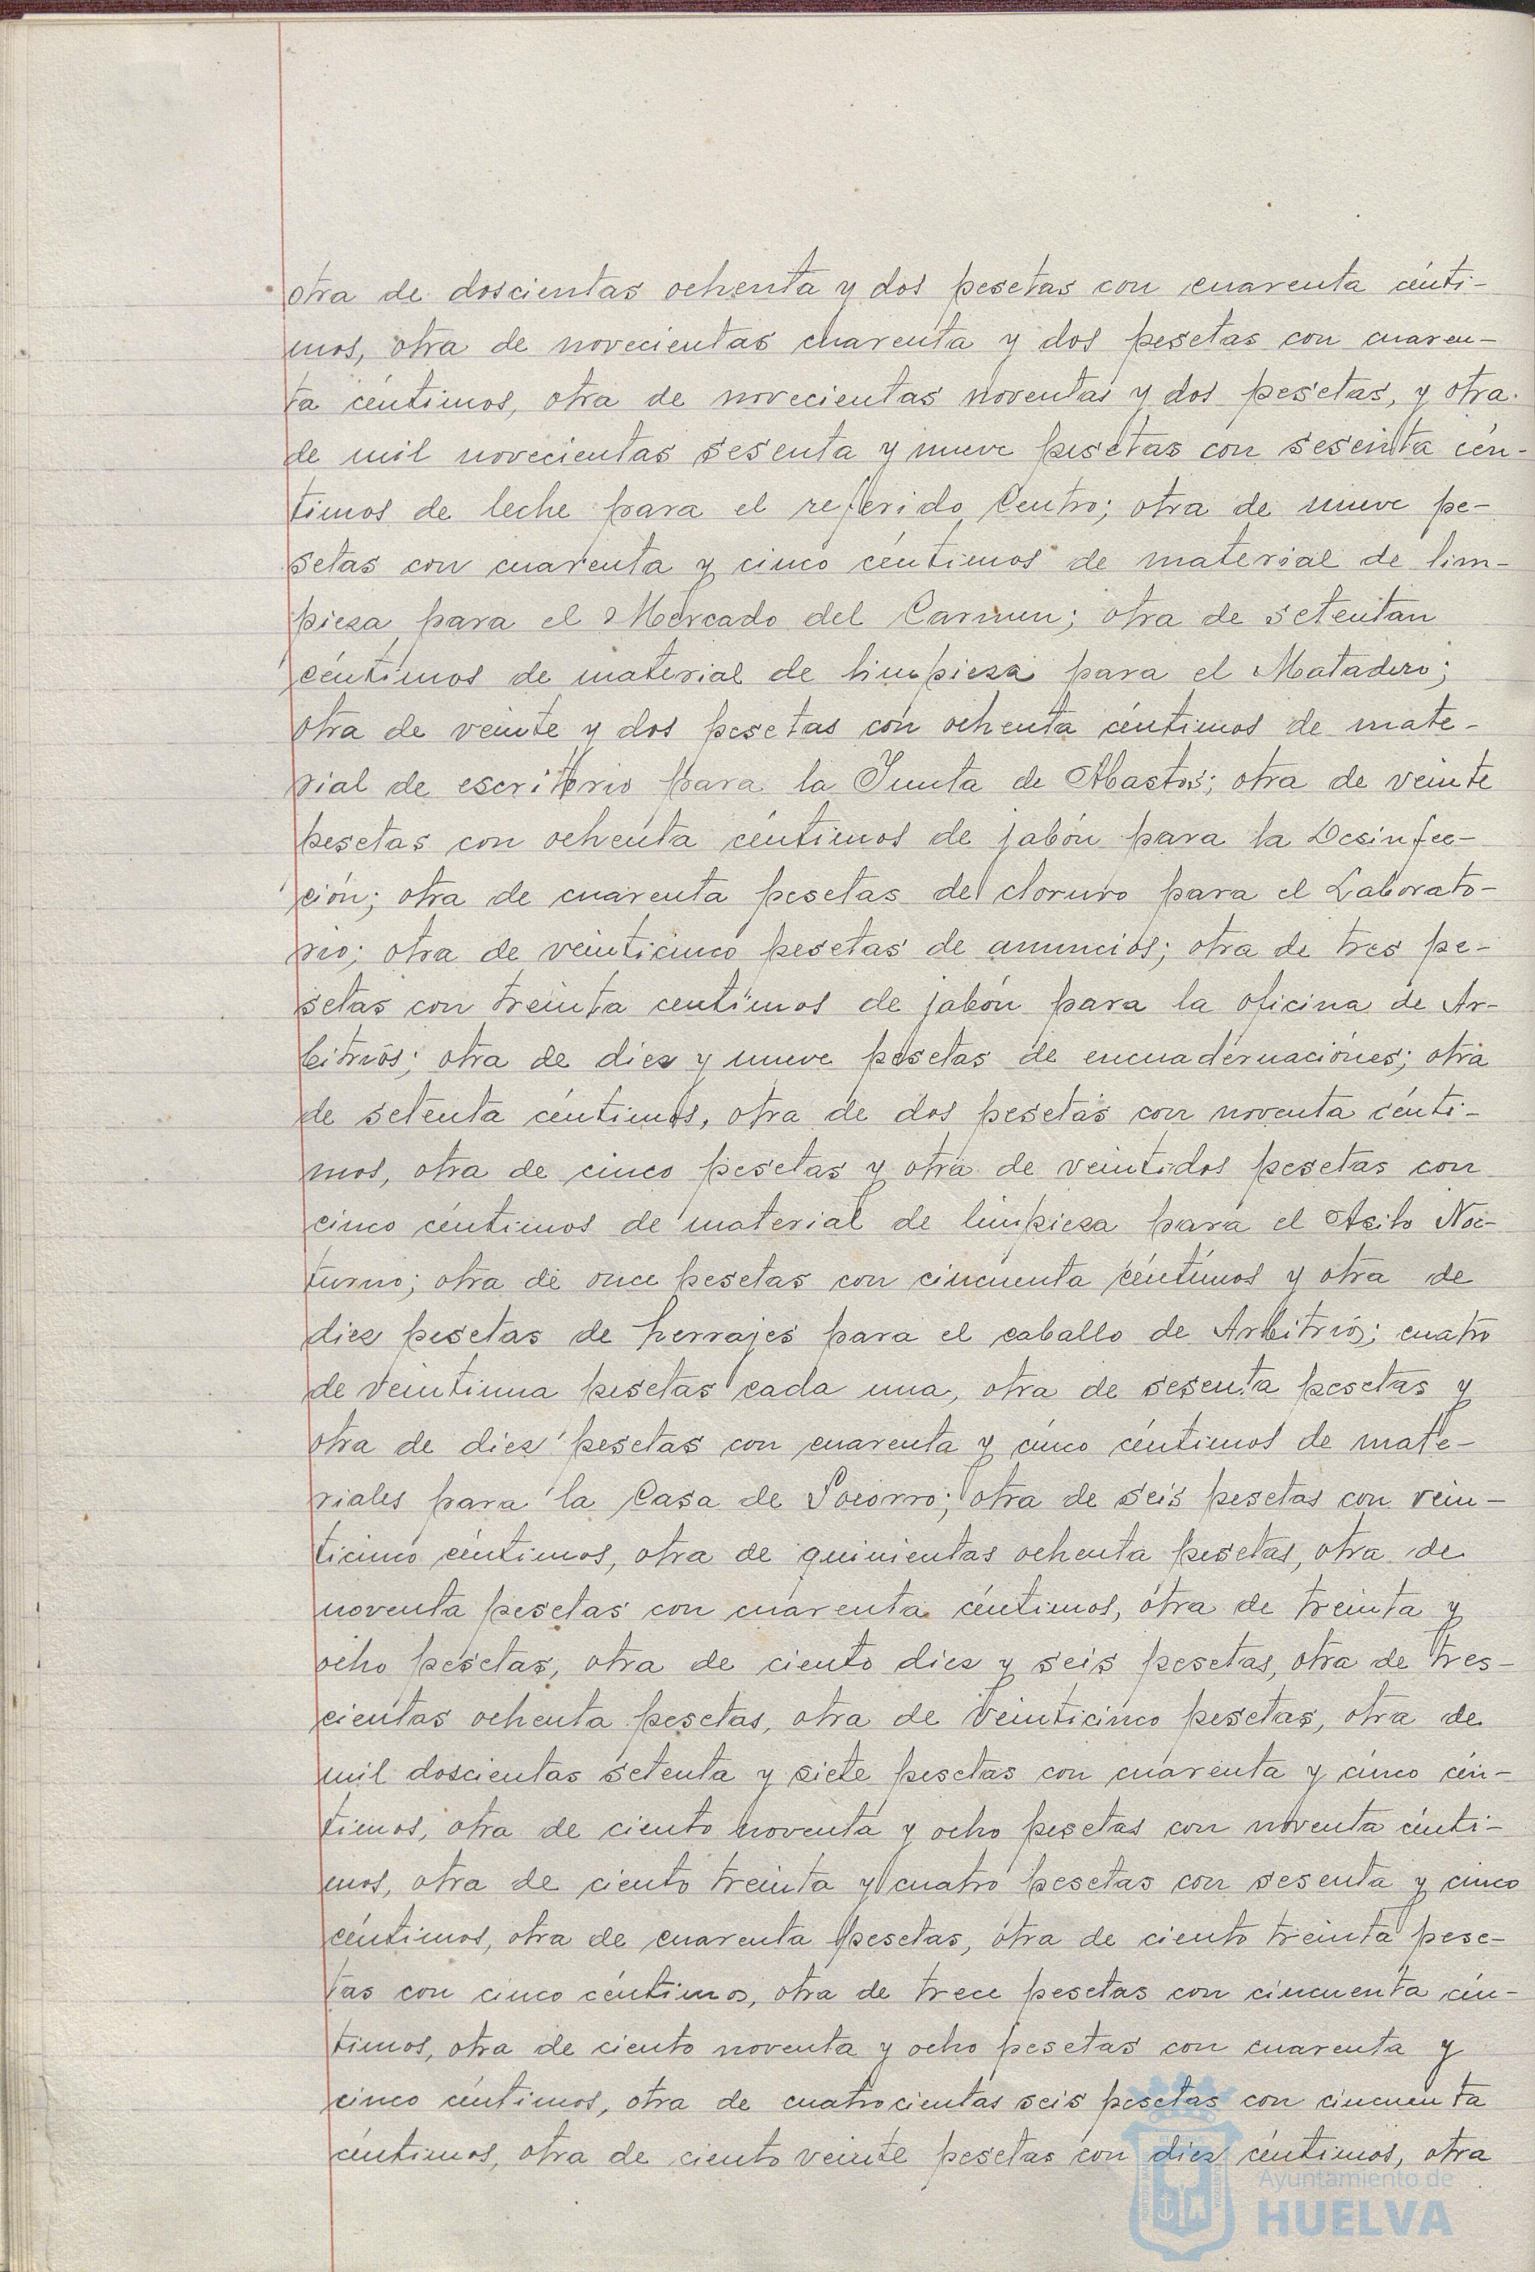 otra de doscientas ochenta y dos pesetas con cuarenta cénti-
mos, otra de novecientas cuarenta y dos pesetas con cuaren-
ta céntimos, otra de novecientas noventas y dos pesetas, y otra
de mil novecientas sesenta y nueve pesetas con sesenta cén-
timos de leche para el referido Centro; otra de nueve pe-
setas con cuarenta y cinco céntimos de material de lim-
pieza para el Mercado del Carmen; otra de setentan
céntimos de material de limpieza para el Matadero;
otra de veinte y dos pesetas con ochenta céntimos de mate-
rial de escritorio para la Junta de Abastos; otra de veinte
pesetas con ochenta céntimos de jabón para la Desinfec-
ción; otra de cuarenta pesetas de cloruro para el Laborato-
rio; otra de veinticinco pesetas de anuncios; otra de tres pe-
setas con treinta centímos de jabón para la oficina de Ar-
bitrios; otra de diez y nueve pesetas de encuadernaciónes; otra
de setenta céntimos, otra de dos pesetas con noventa cénti-
mos, otra de cinco pesetas y otra de veintidos pesetas con
cinco céntimos de material de limpieza para el Asilo Noc-
turno; otra de once pesetas con cincuenta céntimos y otra de
diez pesetas de herrajes para el caballo de Arbitrios; cuatro
de veintiuna pesetas cada una, otra de sesenta pesetas y
otra de diez pesetas con cuarenta y cinco céntimos de mate-
riales para la Casa de Socorro; otra de seis pesetas con vein-
ticinco céntimos, otra de quinientas ochenta pesetas, otra de
noventa pesetas con cuarenta céntimos, otra de treinta y
ocho pesetas, otra de ciento diez y seis pesetas, otra de tres-
cientas ochenta pesetas, otra de veinticinco pesetas, otra de
mil doscientas setenta y siete pesetas con cuarenta y cinco cén-
timos, otra de ciento noventa y ocho pesetas con noventa cénti-
mos, otra de ciento treinta y cuatro pesetas con sesenta y cinco
céntimos, otra de cuarenta pesetas, otra de ciento treinta pese-
tas con cinco céntimos, otra de trece pesetas con cincuenta cén-
timos, otra de ciento noventa y ocho pesetas con cuarenta y
cinco céntimos, otra de cuatrocientas seis pesetas con cincuenta
céntimos, otra de ciento veinte pesetas con diez céntimos, otra
Ayuntamiento de
HUELVA